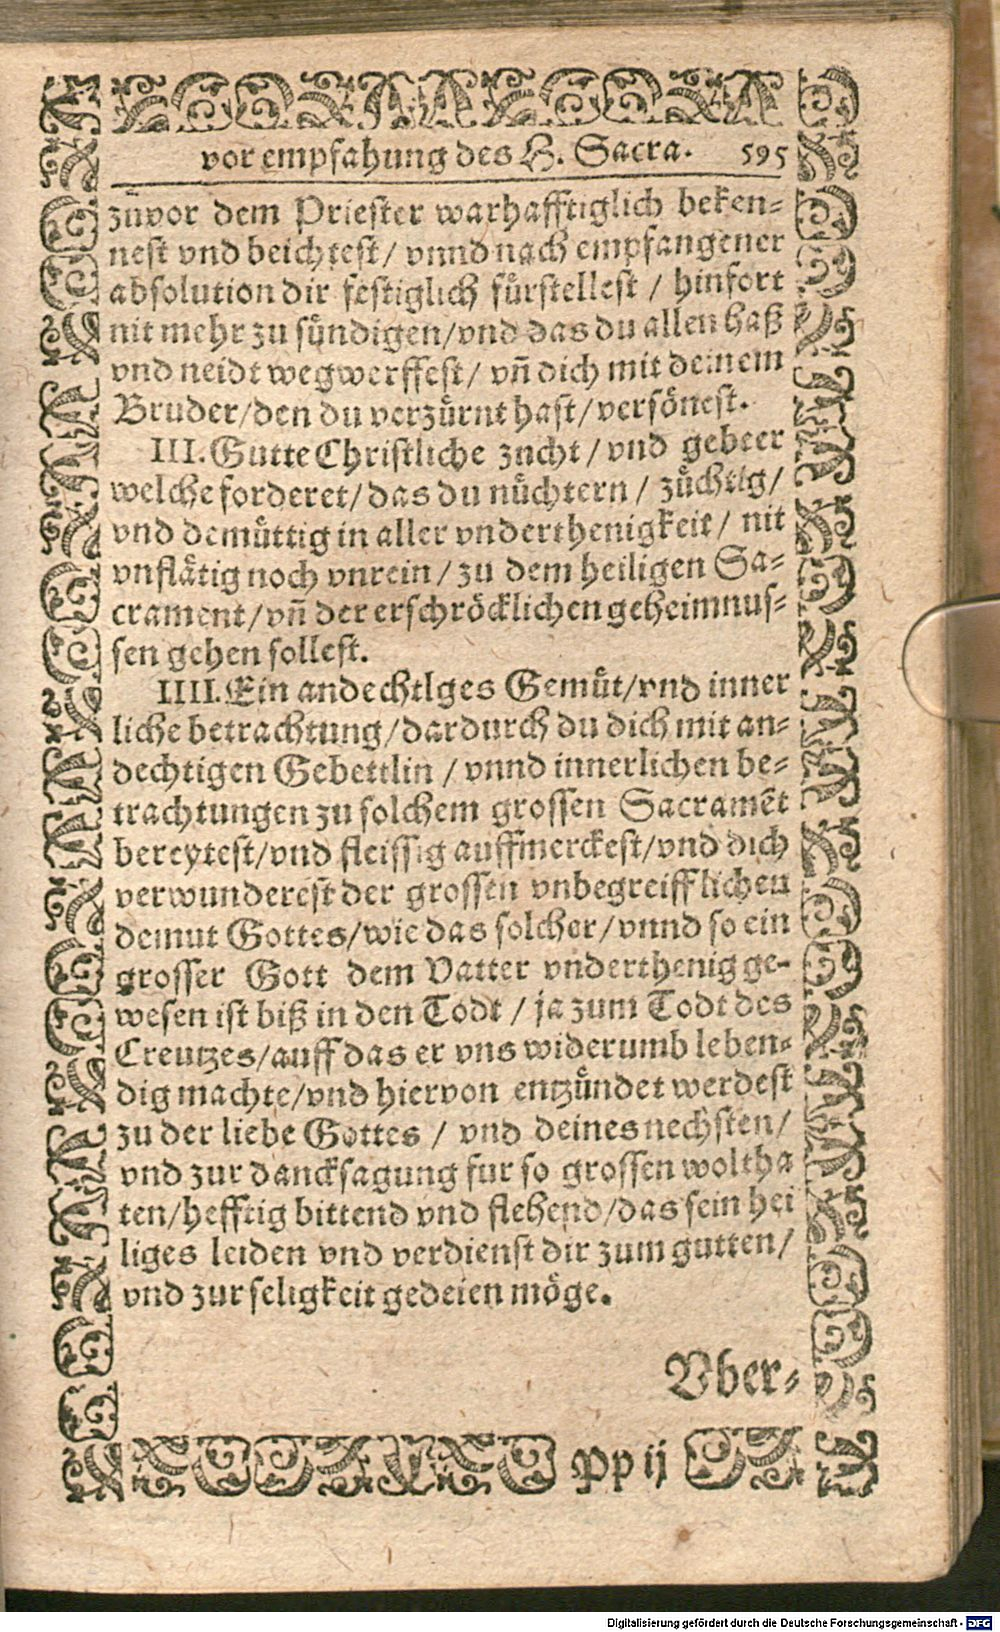 vor empfahung des H. Sacra. 595
zuvor dem Priester warhafftiglich beken-
nest vnd beichtest/ vnnd nach empfangener
absolution dir festiglich fürstellest / hinfort
nit mehr zu sündigen/vnd das du allen haß
vnd neidt wegwerffest/ vñ dich mit deinem
Bruder/den du verzürnt hast/versönest.
III. Gutte Christliche zucht / vnd gebeer
welche forderet/das du nüchtern / züchtig/
vnd demüttig in aller vnderthenigkeit/ nit
vnflätig noch vnrein / zu dem heiligen Sa-
crament/vñ der erschröcklichen geheimnus-
sen gehen sollest.
IIII. Ein andechtiges Gemüt/vnd inner
liche betrachtung/dardurch du dich mit an-
dechtigen Gebettlin / vnnd innerlichen be-
trachtungen zu solchem grossen Sacramēt
bereytest/vnd fleissig auffmerckest/vnd dich
verwunderest der grossen vnbegreifflichen
demut Gottes/wie das solcher/vnnd so ein
grosser Gott dem Vatter vnderthenig ge-
wesen ist biß in den Todt / ja zum Todt des
Creutzes/auff das er vns widerumb leben-
dig machte/vnd hiervon entzündet werdest
zu der liebe Gottes / vnd deines nechsten/
vnd zur dancksagung fur so grossen woltha
ten/hefftig bittend vnd flehend/das sein hei
liges leiden vnd verdienst dir zum gutten/
vnd zur seligkeit gedeien möge.
Vber-
Pp ij
Digitalisierung gefördert durch die Deutsche Forschungsgemeinschaft - DFG